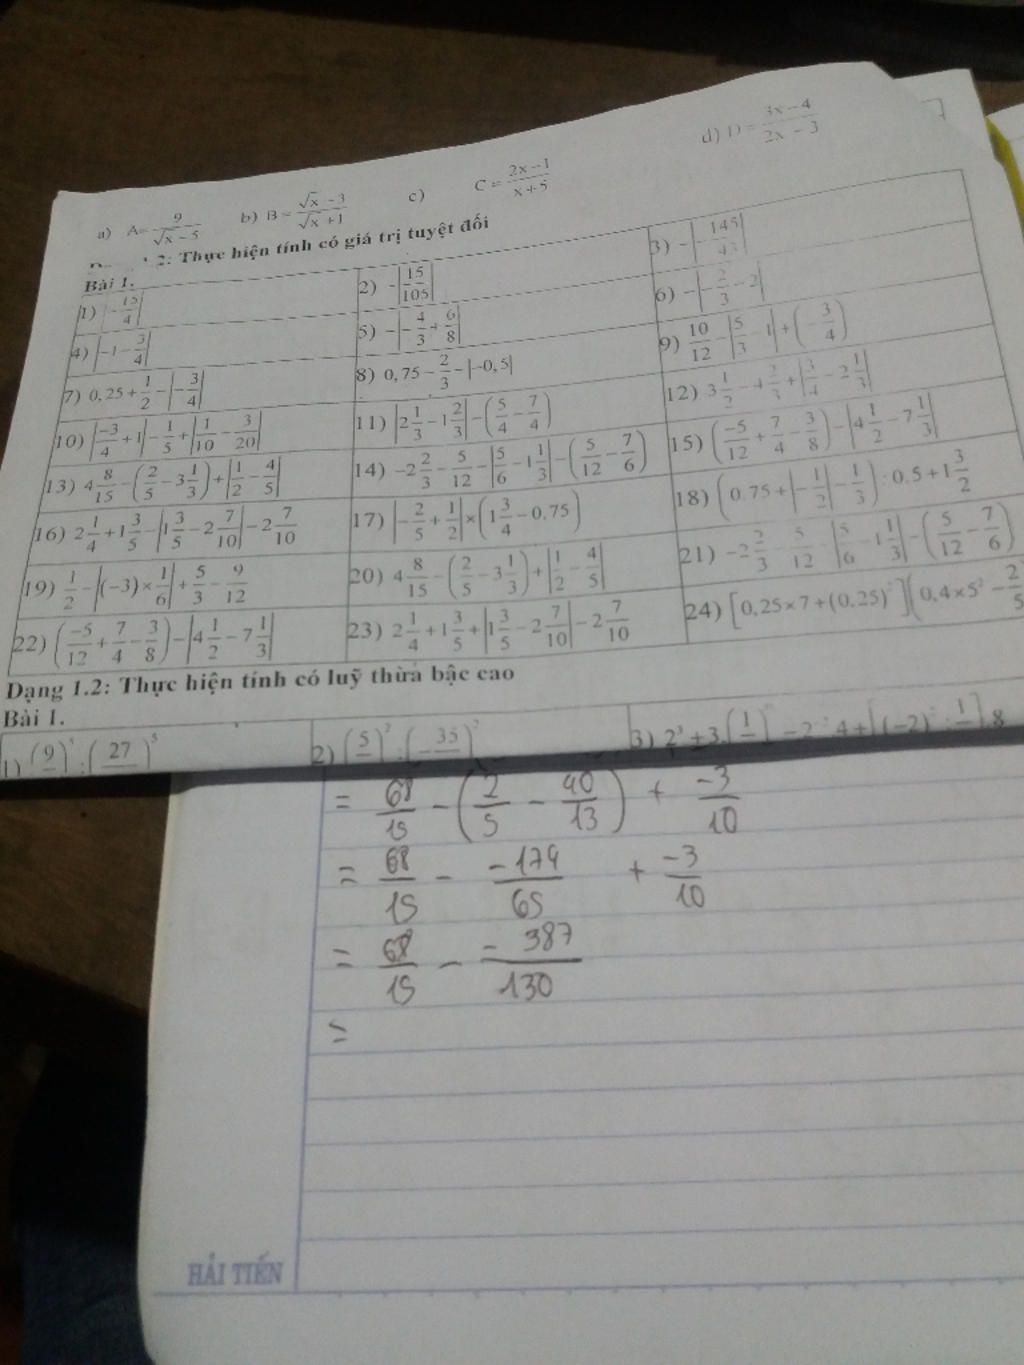 a) A= 9/(√x − 5) b) B = (√x − 3)/(√x + 1) c) C = (2x−1)/(x+5) d) D = (3x−4)/(2x − 3)
2: Thực hiện tính có giá trị tuyệt đối
Bài 1.
1) |−15/4| 2) −|15/105| 3) −|−145/43|
4) |−1−3/4| 5) −|−4/3+6/8| 6) −|−2/3−2|
7) 0,25+1/2−|−3/4| 8) 0,75−2/3−|−0,5| 9) 10/12−|5/3−1|+(−3/4)
10) |−3/4+1|−1/5+|1/10−3/20| 11) |2 1/3−1 2/3|−(5/4−7/4) 12) 3 1/2−4 2/3+|3/4−2 1/3|
13) 4 8/15−(2/5−3 1/3)+|1/2−4/5| 14) −2 2/3−5/12−|5/6−1 1/3|−(5/12−7/6) 15) (−5/12+7/4−3/8)−|4 1/2−7 1/3|
16) 2 1/4+1 3/5−|1 3/5−2 7/10|−2 7/10 17) |−2/5+1/2|×(1 3/4−0,75) 18) (0,75+|−1/2|−1/3):0,5+1 3/2
19) 1/2−|(−3)×1/6|+5/3−9/12 20) 4 8/15−(2/5−3 1/3)+|1/2−4/5| 21) −2 2/3−5/12−|5/6−1 1/3|−(5/12−7/6)
22) (−5/12+7/4−3/8)−|4 1/2−7 1/3| 23) 2 1/4+1 3/5+|1 3/5−2 7/10|−2 7/10 24) [0,25×7+(0,25)²](0,4×5²−2/5
Dạng 1.2: Thực hiện tính có luỹ thừa bậc cao
Bài 1.
1) (9 : (27 )⁵ 2) (5 )² : (−35 )² 3) 2³+3.(1 −2 4+[(−2)² : 1 ].8
= 68/15 − (2/5 − 40/13) + −3/10
= 68/15 − −174/65 + −3/10
= 68/15 − −387/130
=
HẢI TIẾN